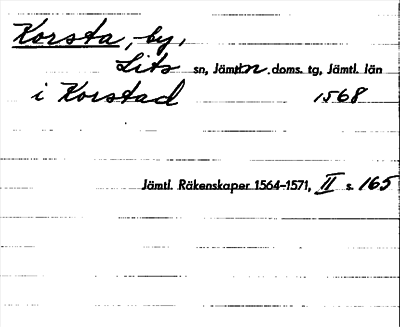 Korsta, by,
Lits sn, Jämtl. n. doms. tg, Jämtl. län
i Korstad 1568
Jämtl. Räkenskaper 1564–1571, II s. 165